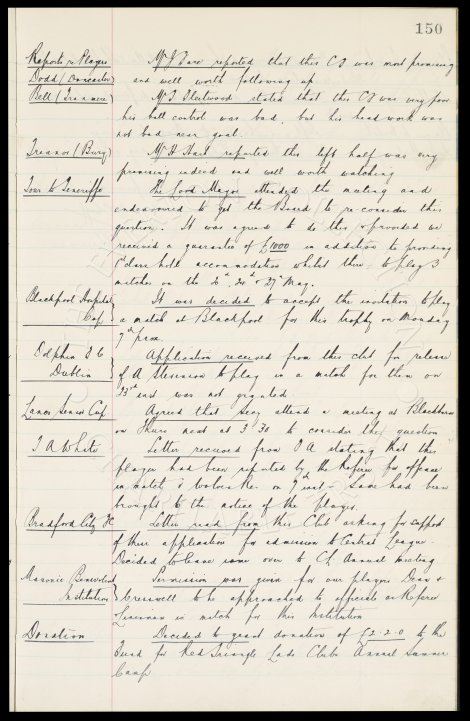 150
Reports re Players Mr J Dare reported that this C.F was most promising
Dodd (Doncaster) and well worth following up.
Bell (Tranmere) Mr J Fleetwood stated that this C.F was very poor
his ball control was bad, but his head work was
not bad near goal.
Treanor (Bury) Mr H Hart reported this left half was very
promising indeed and well worth watching
Tour to Teneriffe The Lord Mayor attended the meeting and
endeavoured to get the Board to re-consider this
question. It was agreed to do this & provided we
received a guarantee of £1000 in addition to providing
1st class hotel accomodation whilst there - to play 3
matches on the 20th 24th & 27th May.
Blackpool Hospital It was decided to accept the invitation to play
Cup a match at Blackpool for this trophy on Monday
7th prox.
Dolphin F.C Application received from this club for release
Dublin of A Stevenson to play in a match for them on
23rd inst was not granted.
Lancs Senior Cup Agreed that Secy attend a meeting at Blackburn
on Thurs next at 3.30 to consider this question
T A White Letter received from F A stating that this
player had been reported by the Referee for offence
in match v Wolves &c. on 9th inst - Same had been
brought to the notice of the player.
Bradford City FC Letter read from this Club asking for support
of their application for admission to Central League
Decided to leave same over to C.L Annual Meeting
Masonic Benevolent Permission was given for our players Dean &
Institution Cresswell to be approached to officiate as Referee
Linesman in match for this Institution
Donation Decided to grant donation of £2-2-0 to the
Fund for Red Triangle Lads Clubs Annual Summer
Camp